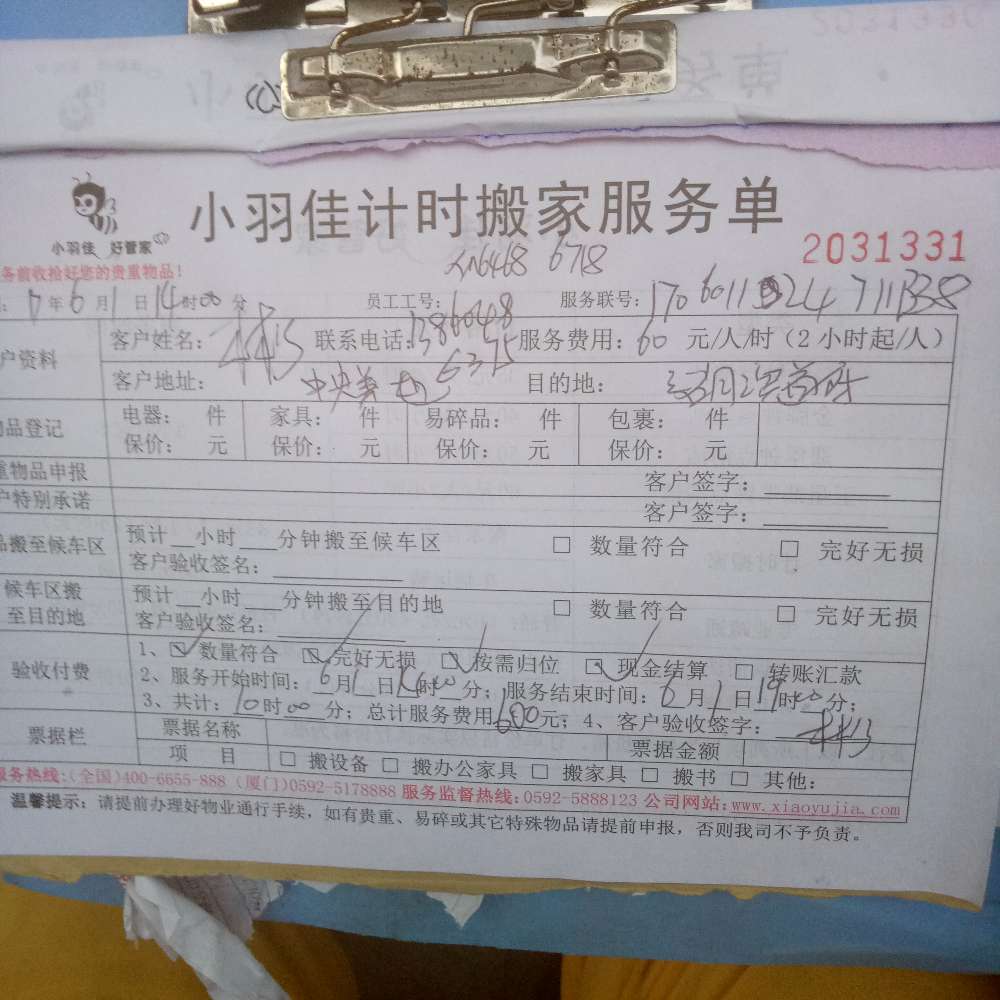 小羽佳计时搬家服务单
小羽佳 好管家
2031331
务前收检好您的贵重物品!
6718
7年6月1日14时00分 员工工号: 服务联号:
户资料 客户姓名: 联系电话: 服务费用:60 元/人/时(2小时起/人)
客户地址: 中央美地 目的地:
品登记 电器: 件 家具: 件 易碎品: 件 包裹: 件
保价: 元 保价: 元 保价: 元 保价: 元
重物品申报 客户签字:
户特别承诺 客户签字:
品搬至候车区 预计__小时___分钟搬至候车区 □ 数量符合 □ 完好无损
客户验收签名:
候车区搬至目的地 预计__小时___分钟搬至目的地 □ 数量符合 □ 完好无损
客户验收签名:
验收付费 1、☑数量符合 ☑完好无损 ☑按需归位 ☑现金结算 □ 转账汇款
2、服务开始时间:6月1日14时00分;服务结束时间:6月1日19时00分;
3、共计:10时00分;总计服务费用600元;4、客户验收签字:
票据栏 票据名称 票据金额
项 目 □ 搬设备 □ 搬办公家具 □ 搬家具 □ 搬书 □ 其他:
服务热线:(全国)400-6655-888 (厦门)0592-5178888 服务监督热线:0592-5888123 公司网站:www.xiaoyujia.com
温馨提示:请提前办理好物业通行手续,如有贵重、易碎或其它特殊物品请提前申报,否则我司不予负责。